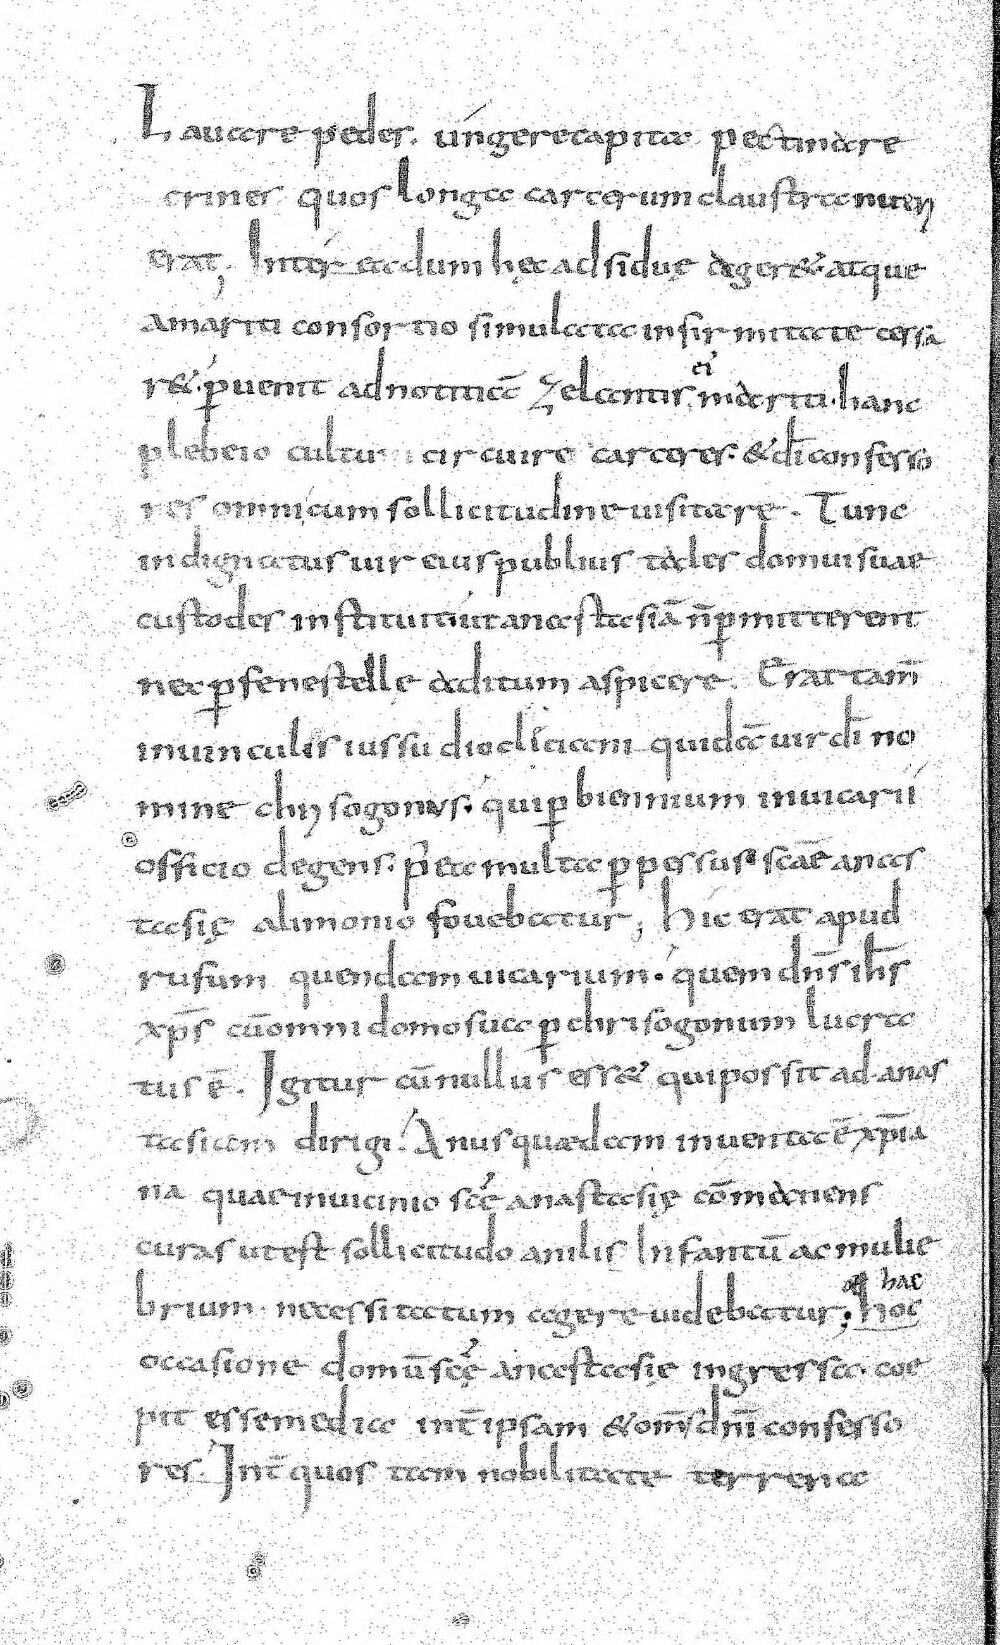 Lauare pedes. ungere capita pectinare
crines quos longa carcerum claustra nutri
erat; Inter ea dum hęc adsiduę ageret atque
a mariti consortio simulata infirmitate cessa
ret. ꝑuenit ad notitiā zelantis ei mariti. hanc
plebeio cultu circuire carceres. & dī confesso
res omni cum sollicitudine uisitare. Tunc
indignatus uir eius publius tales domui suae
custodes instituit. ut anastasiā n̄ ꝑmitterent
nec ꝑ fenestelle aditum aspicere. Erat tam̄
in uinculis iussu diocliciani quidā uir dī no
mine chrysogonus. qui ꝑ biennium in uicarii
officio degens. p̄ ea multa ꝑpessus scāe anas
tasię alimonio fouebatur; hic erat apud
rufum quendam uicarium. quem dn̄s ih̄s
xp̄s cū omni domo sua ꝑ chrisogonum lucra
tus ē. Igitur cū nullus esset qui possit ad anas
tasiam dirigi. Anus quædam inuenta ē xp̄ia
na quae in uicinio scę anastasię cōmanens
curas ut est sollicitudo anilis Infantū ac mulie
brium necessitatum agere uidebatur; hac
hoc
occasione domū scę anastasię ingressa. coe
pit esse media int̄ ipsam & om̄s dn̄i confesso
res. Int̄ quos tam nobilitate terrena